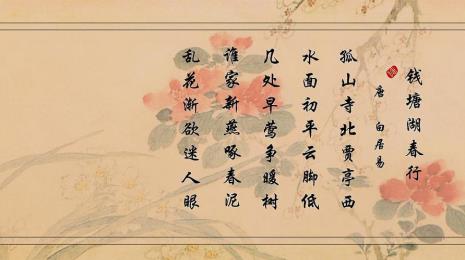 钱塘湖春行
唐 白居易
孤山寺北贾亭西
水面初平云脚低
几处早莺争暖树
谁家新燕啄春泥
乱花渐欲迷人眼